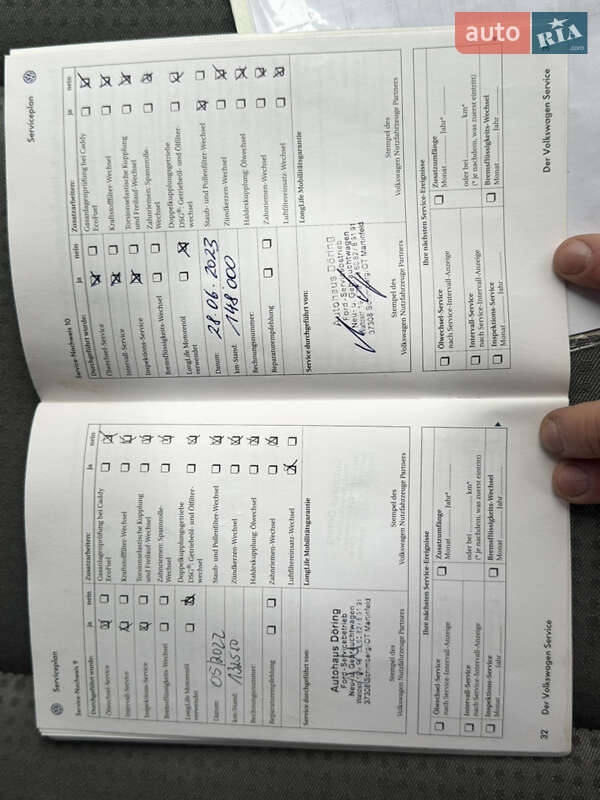 auto RIA.com
Serviceplan
Service-Nachweis 9
Durchgeführt wurde: ja nein
Ölwechsel-Service
Intervall-Service
Inspektions-Service
Bremsflüssigkeits-Wechsel
LongLife Motorenöl
verwendet
Datum: 05/2022
km-Stand:
Rechnungsnummer:
Reparaturempfehlung
Service durchgeführt von:
Autohaus Döring
Ford-Servicebetrieb
Neu- u. Gebrauchtwagen
Stempel des
Volkswagen Nutzfahrzeuge Partners
Zusatzarbeiten: ja nein
Gasanlagenprüfung bei Caddy
EcoFuel
Kraftstofffilter-Wechsel
Torsionselastische Kupplung
und Freilauf-Wechsel
Zahnriemen-Spannrolle-
Wechsel
Doppelkupplungsgetriebe
DSG®: Getriebeöl- und Ölfilter-
wechsel
Staub- und Pollenfilter-Wechsel
Zündkerzen-Wechsel
Haldexkupplung: Ölwechsel
Zahnriemen-Wechsel
Luftfiltereinsatz-Wechsel
LongLife Mobilitätsgarantie
Stempel des
Volkswagen Nutzfahrzeuge Partners
Ihre nächsten Service-Ereignisse
Ölwechsel-Service
nach Service-Intervall-Anzeige
Intervall-Service
nach Service-Intervall-Anzeige
Inspektions-Service
Monat Jahr
Zusatzumfänge
Monat Jahr*
oder bei km*
(* je nachdem, was zuerst eintritt)
Bremsflüssigkeits-Wechsel
Monat Jahr
32 Der Volkswagen Service
Serviceplan
Service-Nachweis 10
Durchgeführt wurde: ja nein
Ölwechsel-Service
Intervall-Service
Inspektions-Service
Bremsflüssigkeits-Wechsel
LongLife Motorenöl
verwendet
Datum: 28.06.2023
km-Stand: 148 000
Rechnungsnummer:
Reparaturempfehlung
Service durchgeführt von:
Autohaus Döring
Ford-Servicebetrieb
Neu- u. Gebrauchtwagen
Stempel des
Volkswagen Nutzfahrzeuge Partners
Zusatzarbeiten: ja nein
Gasanlagenprüfung bei Caddy
EcoFuel
Kraftstofffilter-Wechsel
Torsionselastische Kupplung
und Freilauf-Wechsel
Zahnriemen-Spannrolle-
Wechsel
Doppelkupplungsgetriebe
DSG®: Getriebeöl- und Ölfilter-
wechsel
Staub- und Pollenfilter-Wechsel
Zündkerzen-Wechsel
Haldexkupplung: Ölwechsel
Zahnriemen-Wechsel
Luftfiltereinsatz-Wechsel
LongLife Mobilitätsgarantie
Stempel des
Volkswagen Nutzfahrzeuge Partners
Ihre nächsten Service-Ereignisse
Ölwechsel-Service
nach Service-Intervall-Anzeige
Intervall-Service
nach Service-Intervall-Anzeige
Inspektions-Service
Monat Jahr
Zusatzumfänge
Monat Jahr*
oder bei km*
(* je nachdem, was zuerst eintritt)
Bremsflüssigkeits-Wechsel
Monat Jahr
Der Volkswagen Service